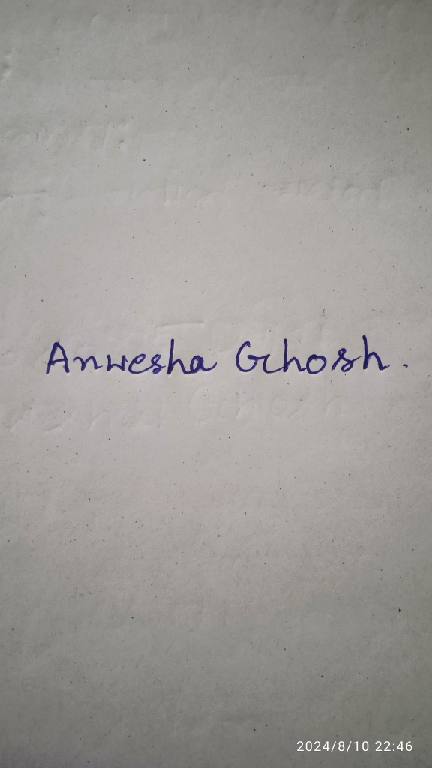 Anwesha Ghosh.
2024/8/10 22:46